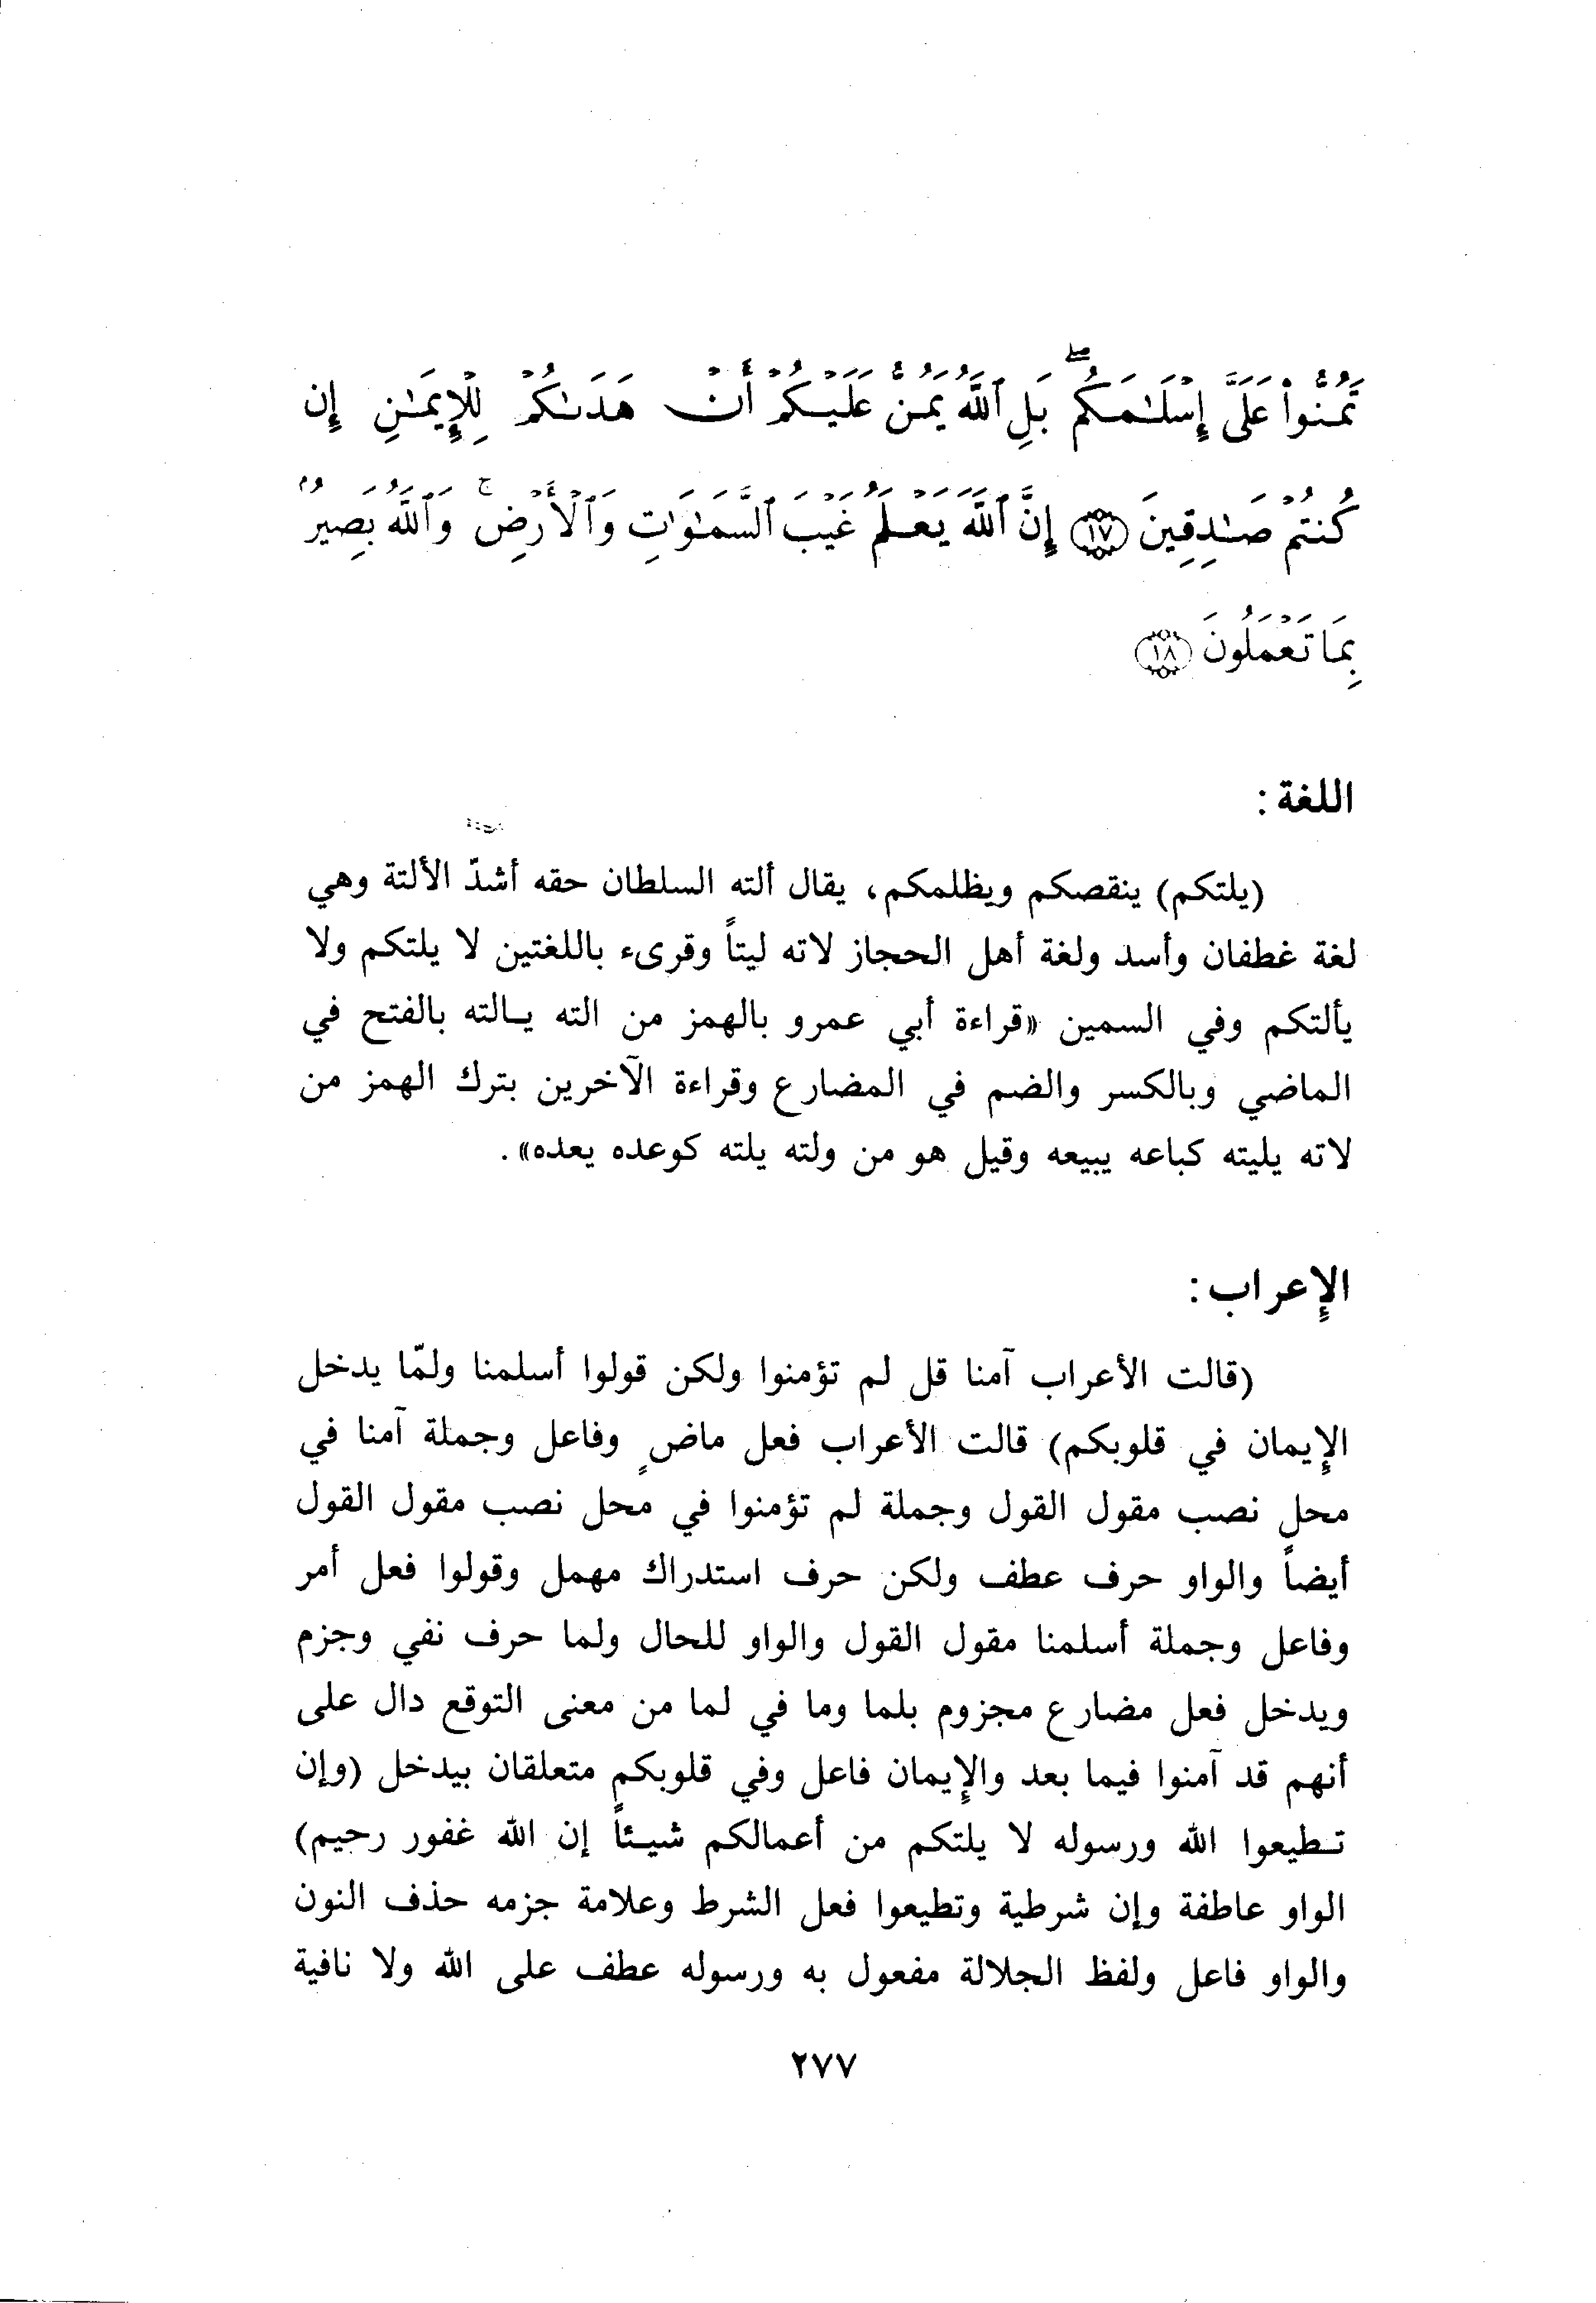 تَمُنُّوا۟ عَلَىَّ إِسْلَـٰمَكُم ۖ بَلِ ٱللَّهُ يَمُنُّ عَلَيْكُمْ أَنْ هَدَىٰكُمْ لِلْإِيمَـٰنِ إِن
كُنتُمْ صَـٰدِقِينَ ١٧ إِنَّ ٱللَّهَ يَعْلَمُ غَيْبَ ٱلسَّمَـٰوَٰتِ وَٱلْأَرْضِ ۚ وَٱللَّهُ بَصِيرٌۢ
بِمَا تَعْمَلُونَ ١٨
اللغة :
(يلتكم) ينقصكم ويظلمكم، يقال ألته السلطان حقه أشدّ الألتة وهي
لغة غطفان وأسد ولغة أهل الحجاز لاته ليتاً وقرىء باللغتين لا يلتكم ولا
يألتكم وفي السمين «قراءة أبي عمرو بالهمز من الته يـالته بالفتح في
الماضي وبالكسر والضم في المضارع وقراءة الآخرين بترك الهمز من
لاته يليته كباعه يبيعه وقيل هو من ولته يلته كوعده يعده».
الإعراب :
(قالت الأعراب آمنا قل لم تؤمنوا ولكن قولوا أسلمنا ولمّا يدخل
الإيمان في قلوبكم) قالت الأعراب فعل ماضٍ وفاعل وجملة آمنا في
محل نصب مقول القول وجملة لم تؤمنوا في محل نصب مقول القول
أيضاً والواو حرف عطف ولكن حرف استدراك مهمل وقولوا فعل أمر
وفاعل وجملة أسلمنا مقول القول والواو للحال ولما حرف نفي وجزم
ويدخل فعل مضارع مجزوم بلما وما في لما من معنى التوقع دال على
أنهم قد آمنوا فيما بعد والإيمان فاعل وفي قلوبكم متعلقان بيدخل (وإن
تـطيعوا الله ورسوله لا يلتكم من أعمالكم شيـئاً إن الله غفور رحيم)
الواو عاطفة وإن شرطية وتطيعوا فعل الشرط وعلامة جزمه حذف النون
والواو فاعل ولفظ الجلالة مفعول به ورسوله عطف على الله ولا نافية
٢٧٧